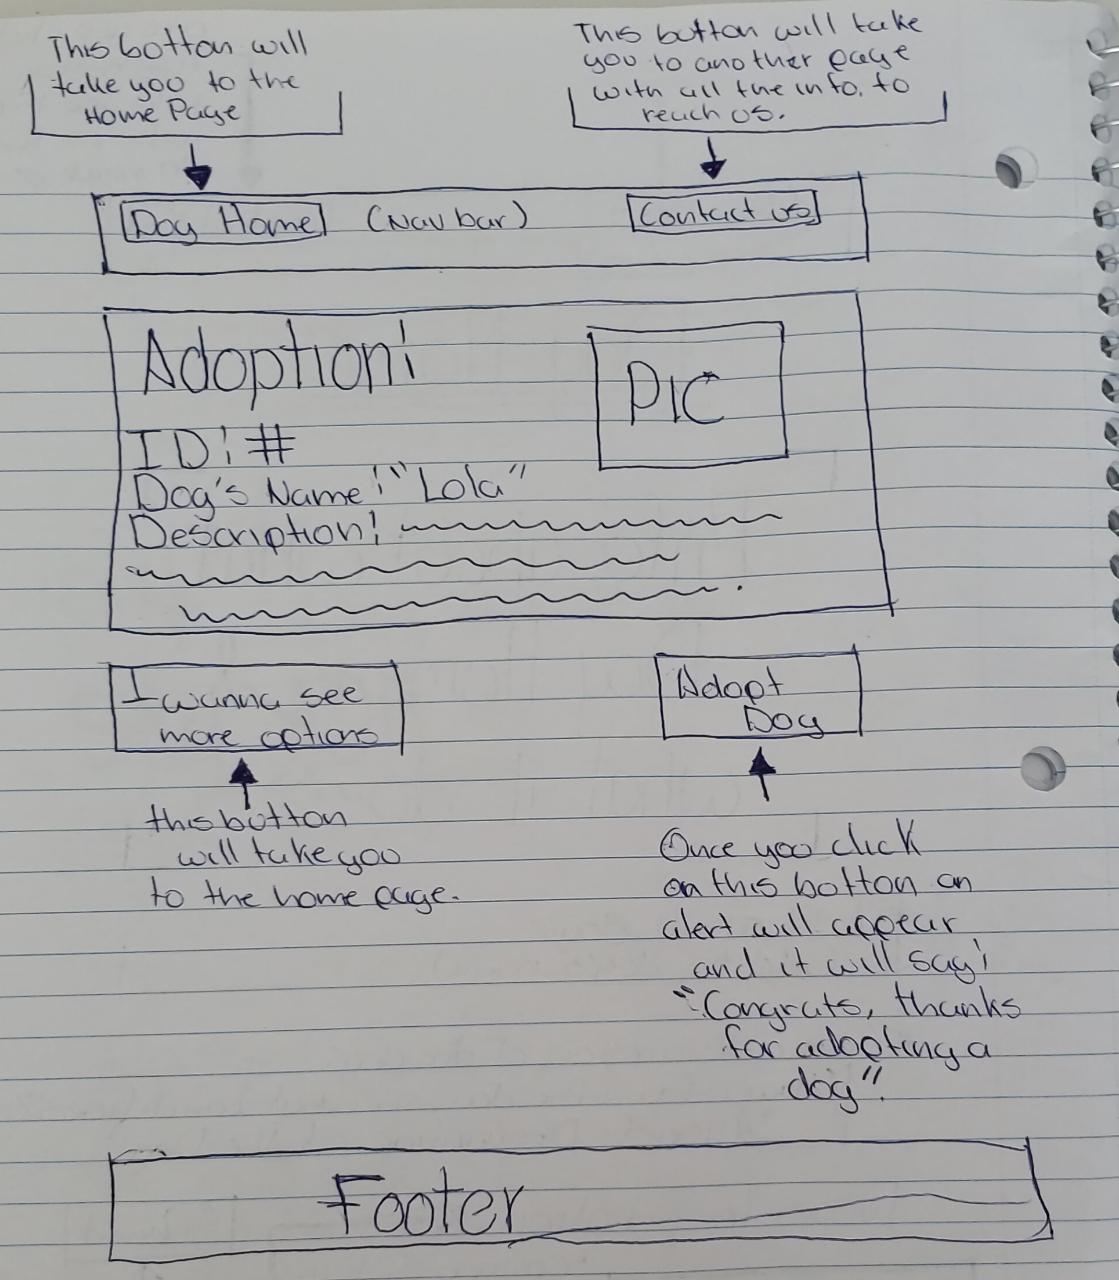 This botton will
take you to the
Home Page
This button will take
you to another page
with all the info. to
reach us.
Dog Home (Nav bar) Contact us
Adoption!
PIC
ID: #
Dog's Name: "Lola"
Description:
I wanna see
more options
Adopt
Dog
this button
will take you
to the home page.
Once you click
on this botton an
alert will appear
and it will say:
"Congrats, thanks
for adopting a
dog".
Footer